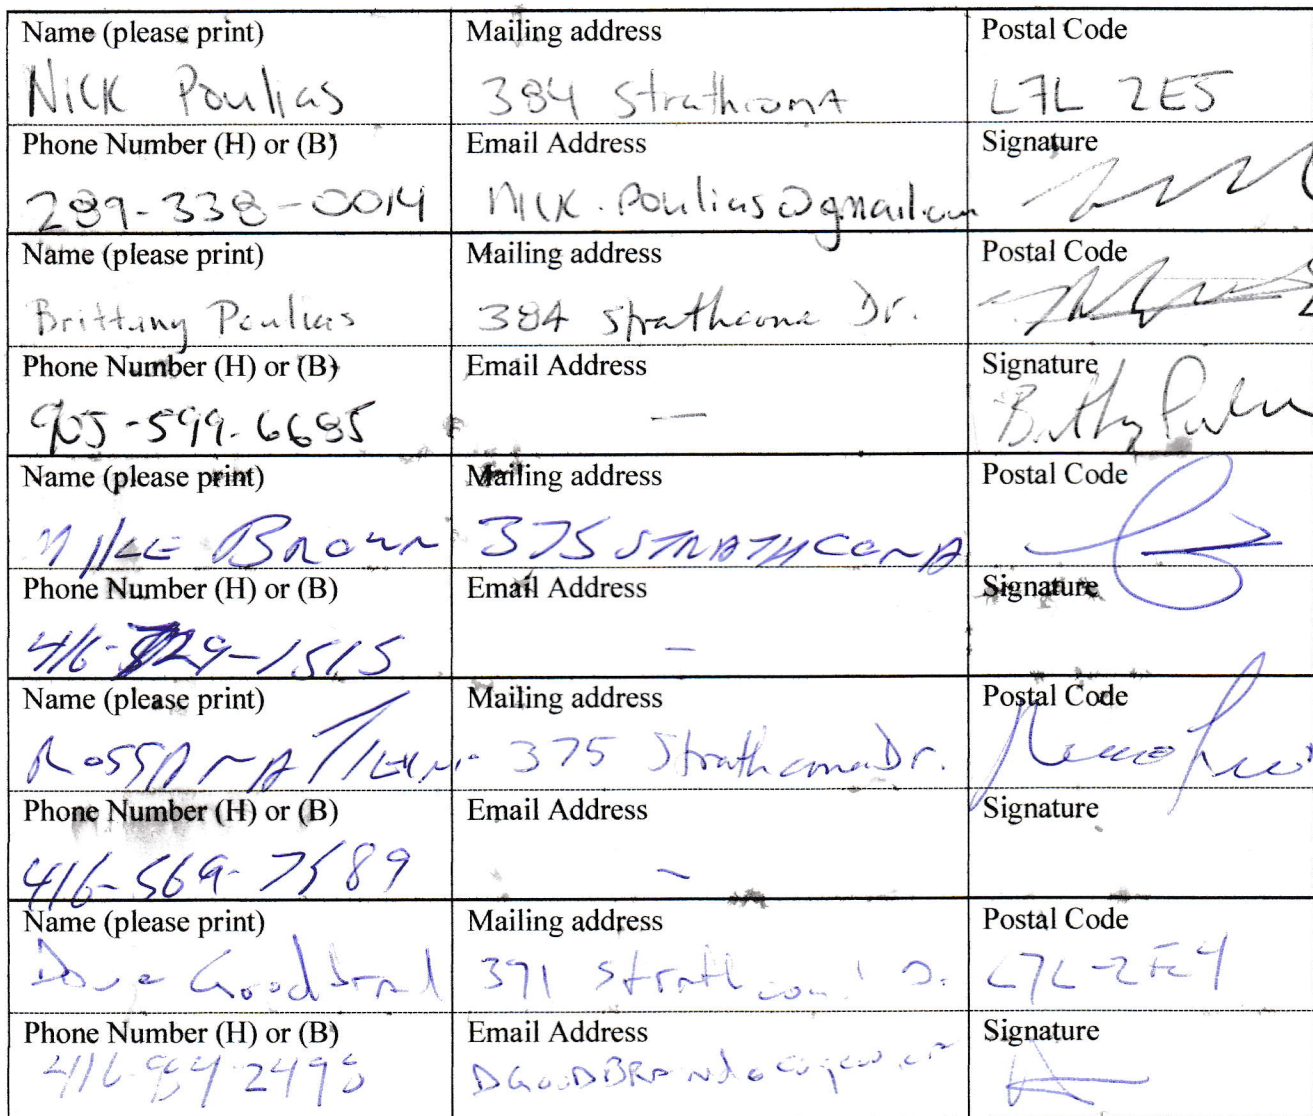 Name (please print) Mailing address Postal Code
Nick Poulias 384 Strathcona L7L 2E5
Phone Number (H) or (B) Email Address Signature
289-338-0014 Nick.Poulias@gmail.com
Name (please print) Mailing address Postal Code
Brittany Poulias 384 Strathcona Dr.
Phone Number (H) or (B) Email Address Signature
905-599-6685 —
Name (please print) Mailing address Postal Code
Mike Brown 375 STRATHCONA
Phone Number (H) or (B) Email Address Signature
416-729-1515 —
Name (please print) Mailing address Postal Code
ROSSANA 375 Strathcona Dr.
Phone Number (H) or (B) Email Address Signature
416-569-7589 –
Name (please print) Mailing address Postal Code
Goodbrand 391 Strathcona D. L7L-2E4
Phone Number (H) or (B) Email Address Signature